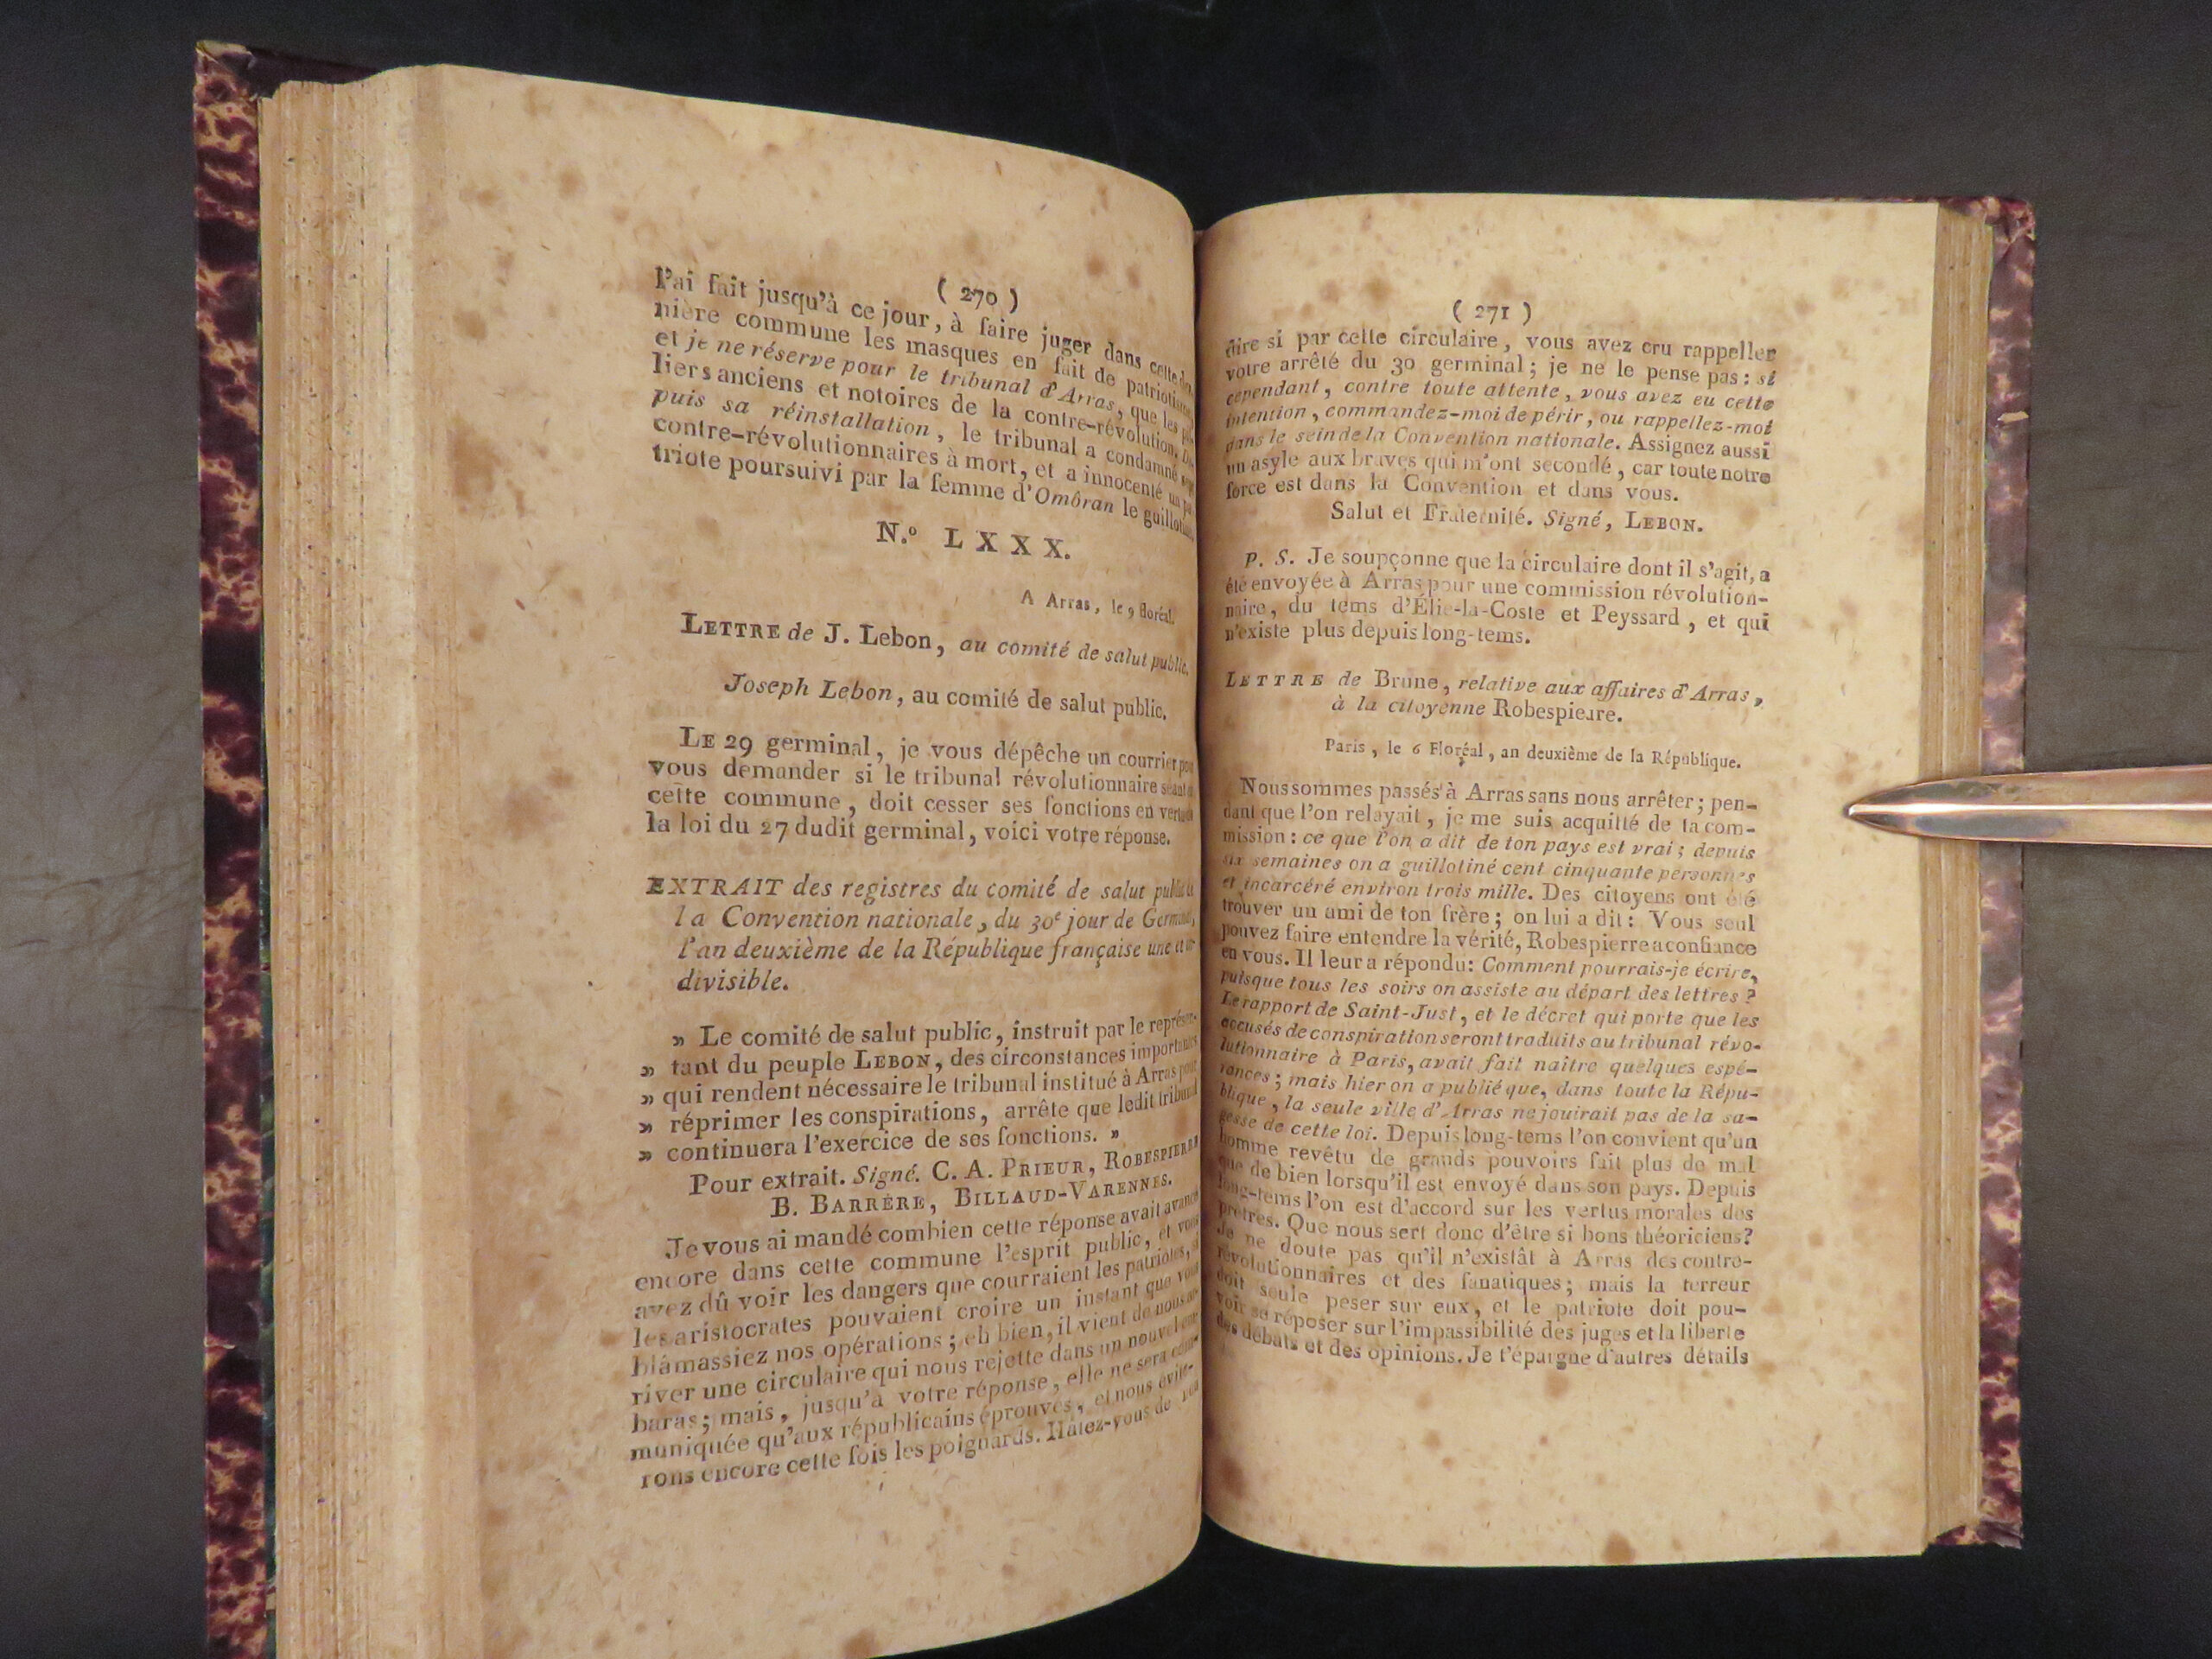 ( 270 )
l'ai fait jusqu'à ce jour, à faire juger dans cette
nière commune les masques en fait de
et je ne réserve pour le tribunal d'Arras, que les
liers anciens et notoires de la contre-révolution.
puis sa réinstallation, le tribunal a condamné
contre-révolutionnaires à mort, et a innocenté un
triote poursuivi par la femme d'Ombran le
N.º LXXX.
A Arras, le 9 floréal.
LETTRE de J. Lebon, au comité de salut public.
Joseph Lebon, au comité de salut public.
LE 29 germinal, je vous dépêche un courrier
vous demander si le tribunal révolutionnaire
cette commune, doit cesser ses fonctions en
la loi du 27 dudit germinal, voici votre réponse.
EXTRAIT des registres du comité de salut
la Convention nationale, du 30e jour de
l'an deuxième de la République française une
divisible.
» Le comité de salut public, instruit par le
» tant du peuple LEBON, des circonstances
» qui rendent nécessaire le tribunal institué à Arras
» réprimer les conspirations, arrête que ledit
» continuera l'exercice de ses fonctions. »
Pour extrait. Signé. C. A. PRIEUR, ROBESPIERRE
B. BARRÈRE, BILLAUD-VARENNES.
Je vous ai mandé combien cette réponse avait avancé
encore dans cette commune l'esprit public, et vous
avez dû voir les dangers que courraient les patriotes, si
les aristocrates pouvaient croire un instant que vous
blâmassiez nos opérations; eh bien, il vient de nous
river une circulaire qui nous rejette dans un nouvel
baras; mais, jusqu'à votre réponse, elle ne sera
muniquée qu'aux républicains éprouvés, et nous évite-
rons encore cette fois les poignards. Hâtez-vous de
( 271 )
dire si par cette circulaire, vous avez cru rappeller
votre arrêté du 30 germinal; je ne le pense pas : si
cependant, contre toute attente, vous avez eu cette
intention, commandez-moi de périr, ou rappellez-moi
dans le sein de la Convention nationale. Assignez aussi
un asyle aux braves qui m'ont secondé, car toute notre
force est dans la Convention et dans vous.
Salut et Fraternité. Signé, LEBON.
P. S. Je soupçonne que la circulaire dont il s'agit, a
été envoyée à Arras pour une commission révolution-
naire, du tems d'Élie-la-Coste et Peyssard, et qui
n'existe plus depuis long-tems.
LETTRE de Brune, relative aux affaires d'Arras,
à la citoyenne Robespierre.
Paris, le 6 Floréal, an deuxième de la République.
Nous sommes passés à Arras sans nous arrêter; pen-
dant que l'on relayait, je me suis acquitté de ta com-
mission : ce que l'on a dit de ton pays est vrai; depuis
six semaines on a guillotiné cent cinquante personnes
et incarcéré environ trois mille. Des citoyens ont été
trouver un ami de ton frère; on lui a dit : Vous seul
pouvez faire entendre la vérité, Robespierre a confiance
en vous. Il leur a répondu: Comment pourrais-je écrire,
puisque tous les soirs on assiste au départ des lettres ?
Le rapport de Saint-Just, et le décret qui porte que les
accusés de conspiration seront traduits au tribunal révo-
lutionnaire à Paris, avait fait naître quelques espé-
rances; mais hier on a publié que, dans toute la Répu-
blique, la seule ville d'Arras ne jouirait pas de la sa-
gesse de cette loi. Depuis long-tems l'on convient qu'un
homme revêtu de grands pouvoirs fait plus de mal
que de bien lorsqu'il est envoyé dans son pays. Depuis
long-tems l'on est d'accord sur les vertus morales des
prêtres. Que nous sert donc d'être si bons théoriciens?
Je ne doute pas qu'il n'existât à Arras des contre-
révolutionnaires et des fanatiques; mais la terreur
doit seule peser sur eux, et le patriote doit pou-
voir se réposer sur l'impassibilité des juges et la liberte
des débats et des opinions. Je t'épargne d'autres détails